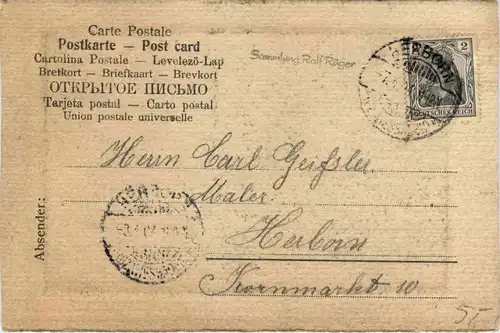 Carte Postale
Postkarte — Post card
Cartolina Postale — Levelező-Lap
Bretkort — Briefkaart — Brevkort
ОТКРЫТОЕ ПИСЬМО
Tarjeta postal — Carto postal
Union postale universelle
Sammlung Ralf Rüger
HERBORN
2
DEUTSCHES REICH
Herrn Carl Geißler
Maler
Herborn
Kornmarkt 10
Absender: